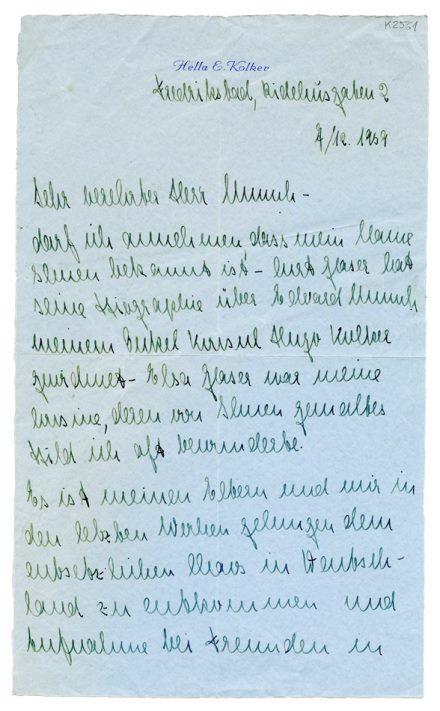 K2561
Hella E. Kolker
Fredrikstad, Ridehusgaten 2
7/12. 1939
Sehr verehrter Herr Munch –
darf ich annehmen dass mein Name
Ihnen bekannt ist – Curt Glaser hat
seine Biographie über Edvard Munch
meinem Onkel Konsul Hugo Kolker
gewidmet – Elsa Glaser war meine
Cusine, deren von Ihnen gemaltes
Bild ich oft bewunderte.
Es ist meinen Eltern und mir in
den letzten Wochen gelungen dem
entsetzlichen Chaos in Deutsch-
land zu entkommen und
Aufnahme bei Freunden in